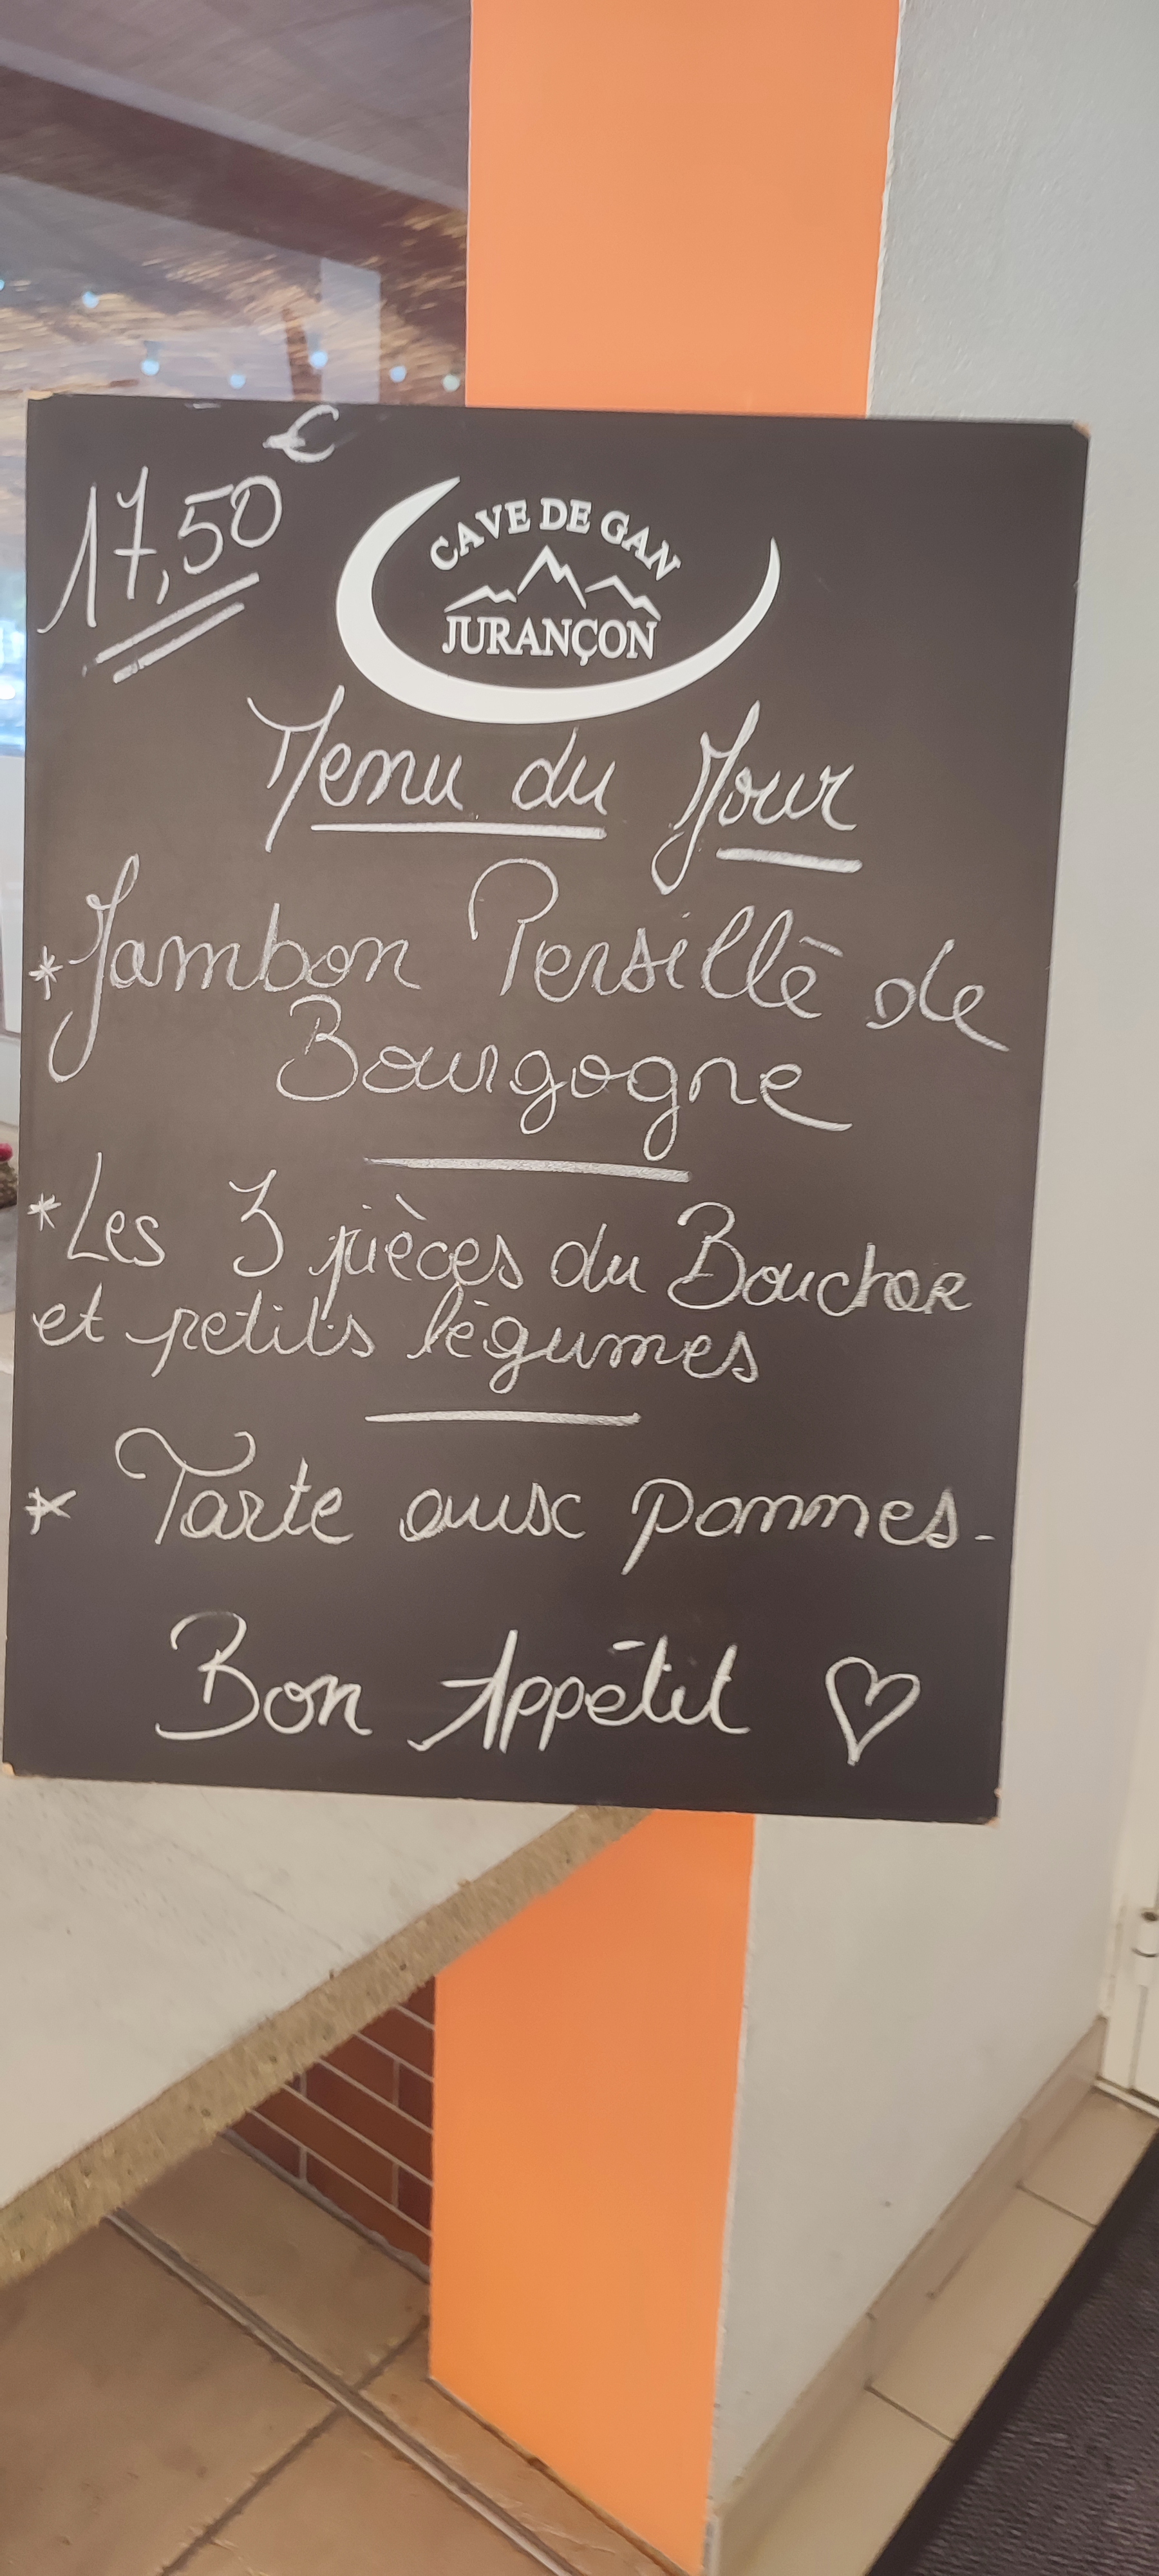 17,50€
CAVE DE GAN
JURANÇON
Menu du Jour
*Jambon Persillé de
Bourgogne
*Les 3 pièces du Boucher
et petits légumes
* Tarte aux pommes.
Bon Appétit ♡